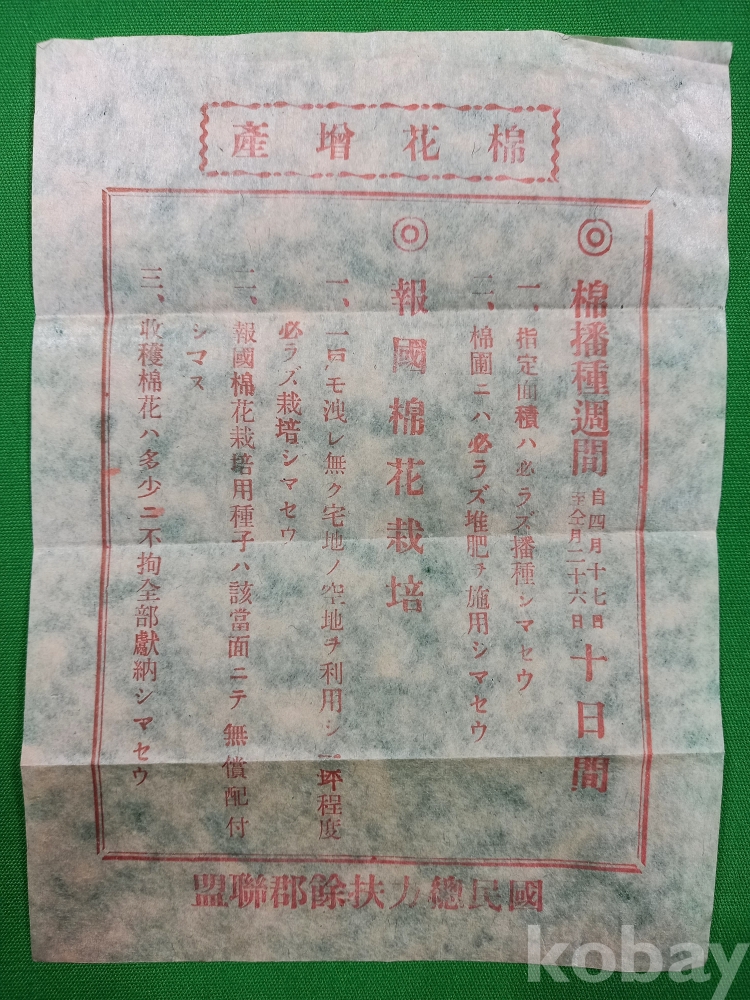 棉花增產
◎棉播種週間 自四月十七日 至仝月二十六日 十日間
一、指定面積ハ必ラズ播種シマセウ
二、棉圃ニハ必ラズ堆肥ヲ施用シマセウ
◎報國棉花栽培
一、一戸モ洩レ無ク宅地ノ空地ヲ利用シ一坪程度
必ラズ栽培シマセウ
二、報國棉花栽培用種子ハ該當面ニテ無償配付
シマス
三、收穫棉花ハ多少ニ不拘全部獻納シマセウ
國民總力扶餘郡聯盟
kobay